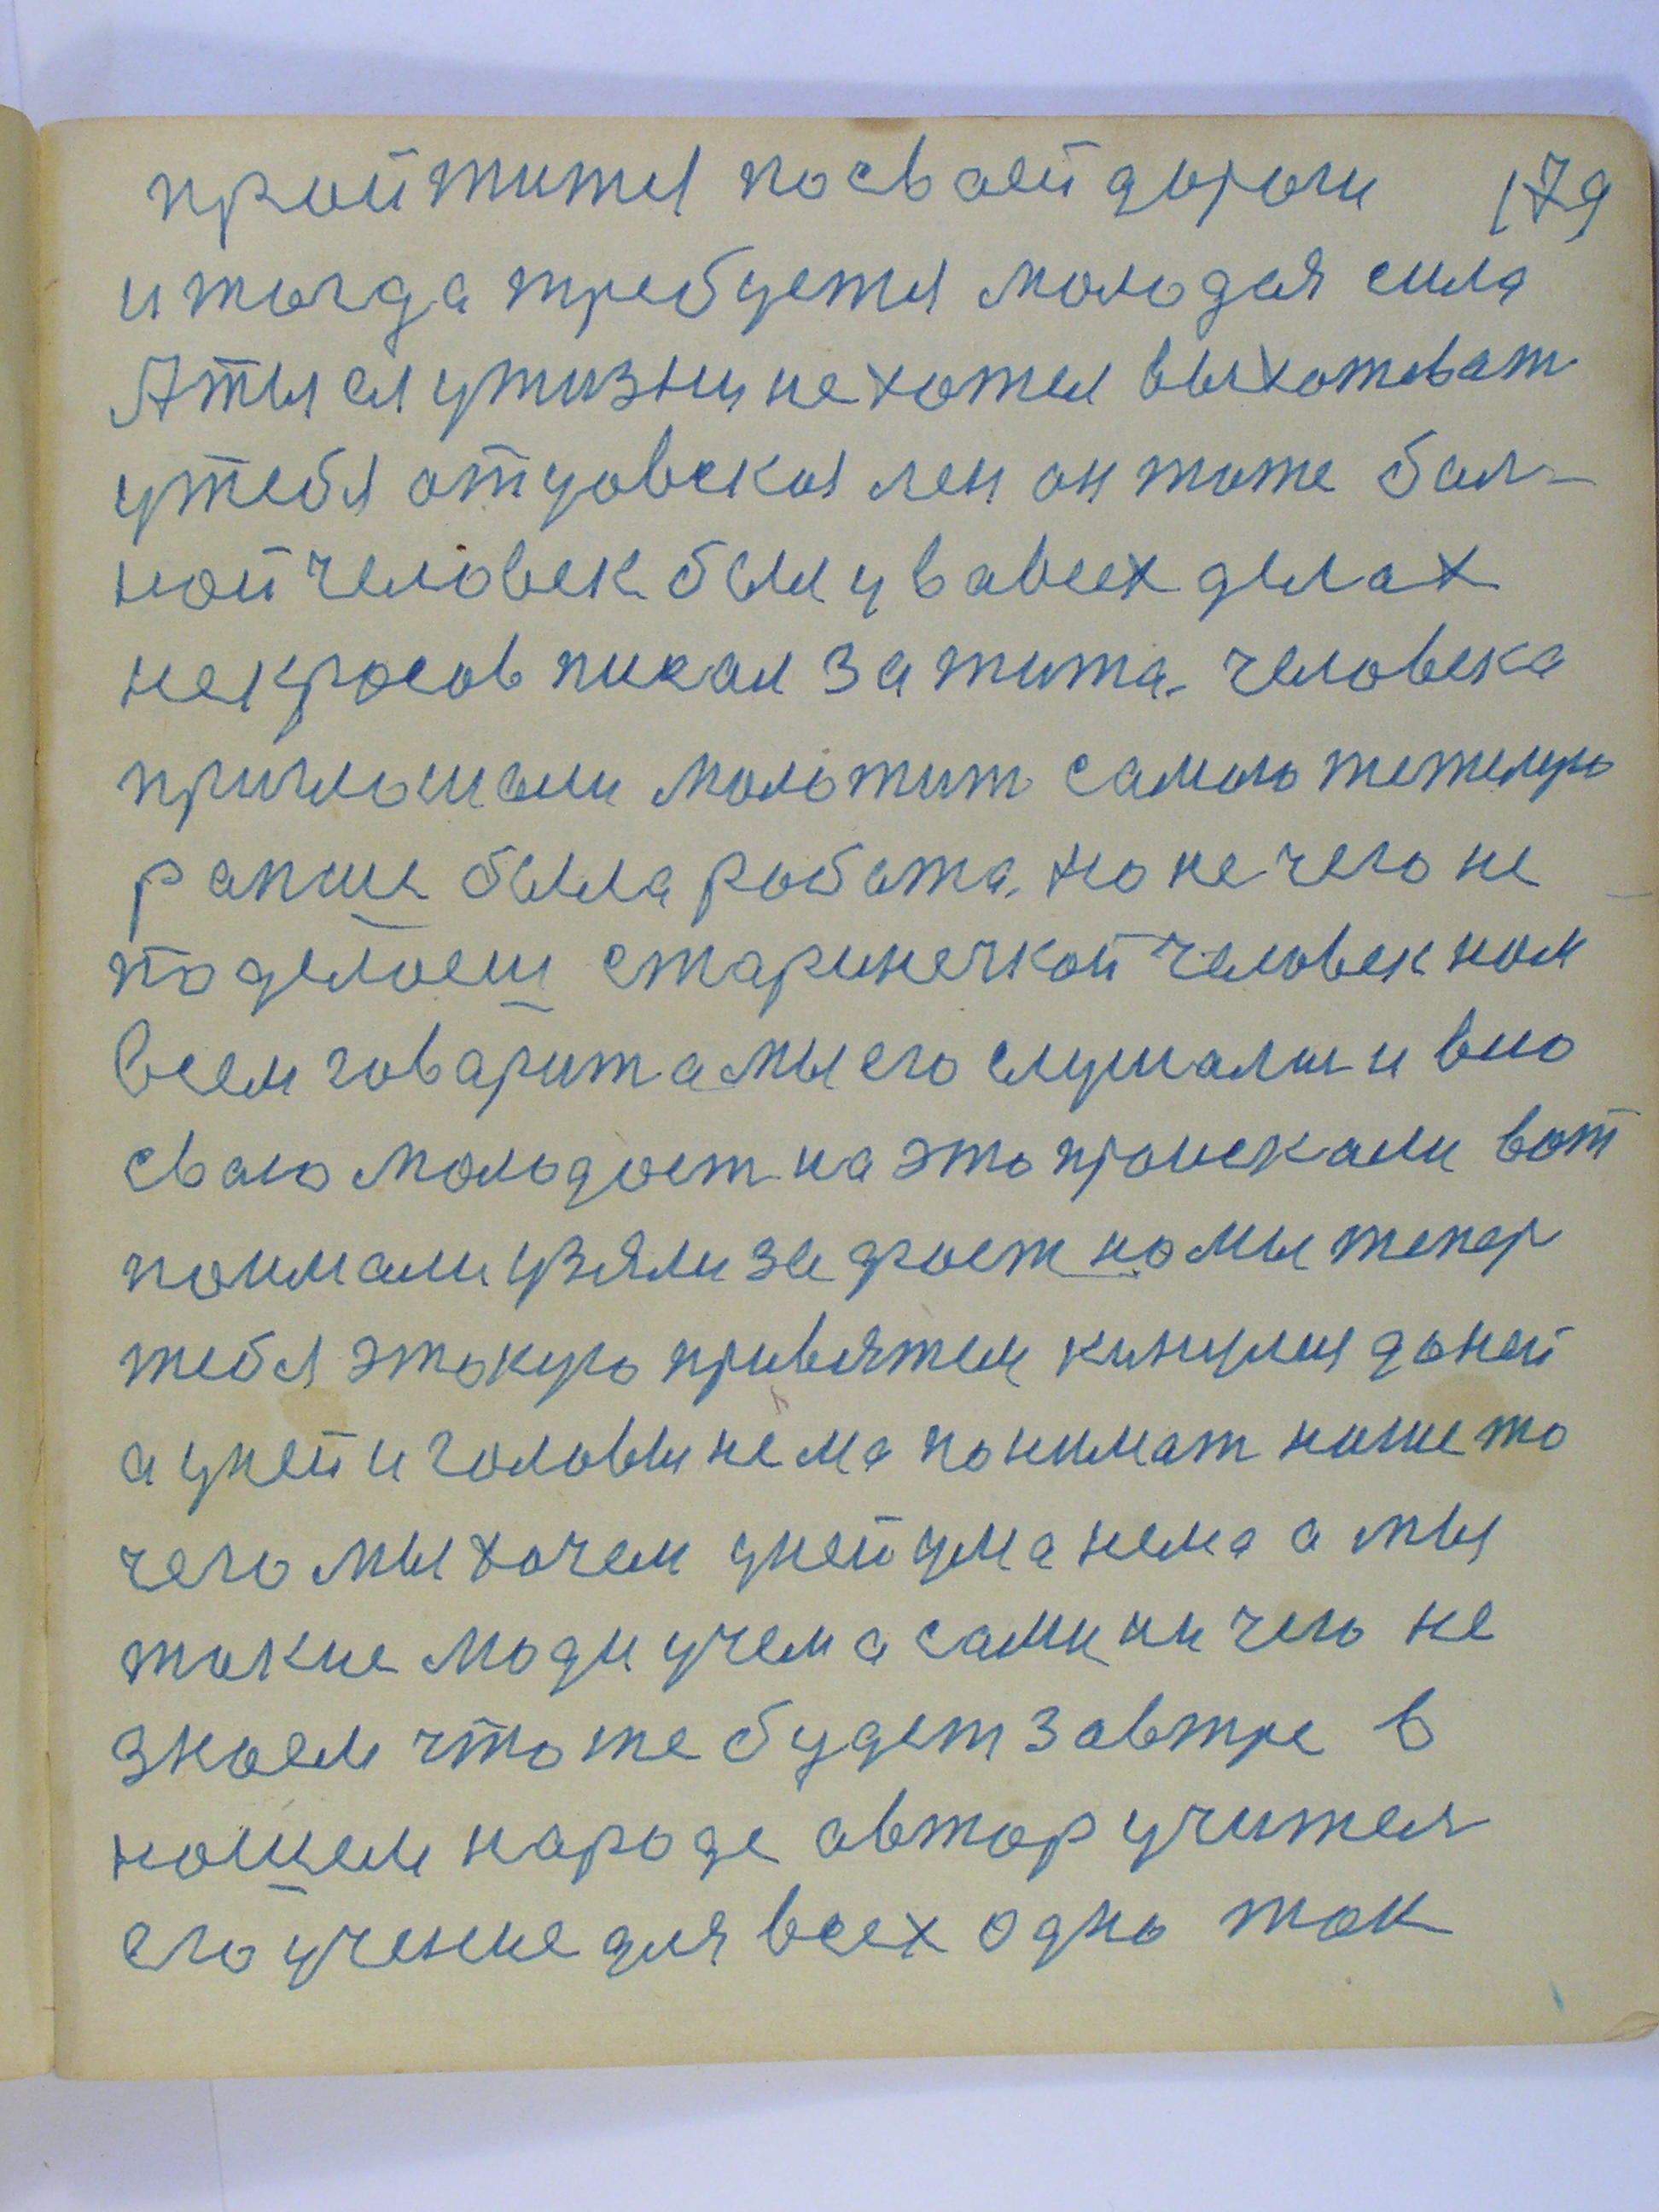 пройтится по сваей дороги 179
и тогда требуется молодая сила
А ты ся у жизни не хотел выхотеват
у тебя отцовская лен он тоже бал-
ной человек был у вавсех делах
некрасов писал за тита. человека
приглошали молотит самаю тежелую
ранше была работа. но не чего не
поделаеш старинечкой человек нам
всем говарит а мы его слушали и вию
сваю молодост на это проискали вот
поимали узяли за хвост но мы тепер
тебя этокую привяжем кинулися до ней
а у ней и головы не ма понимат наше то
чего мы хочем у ней ума нема а мы
такие люди учем а сами ни чего не
знаем что же будет завтре в
нашем народе автор учителя
его учение для всех одно так